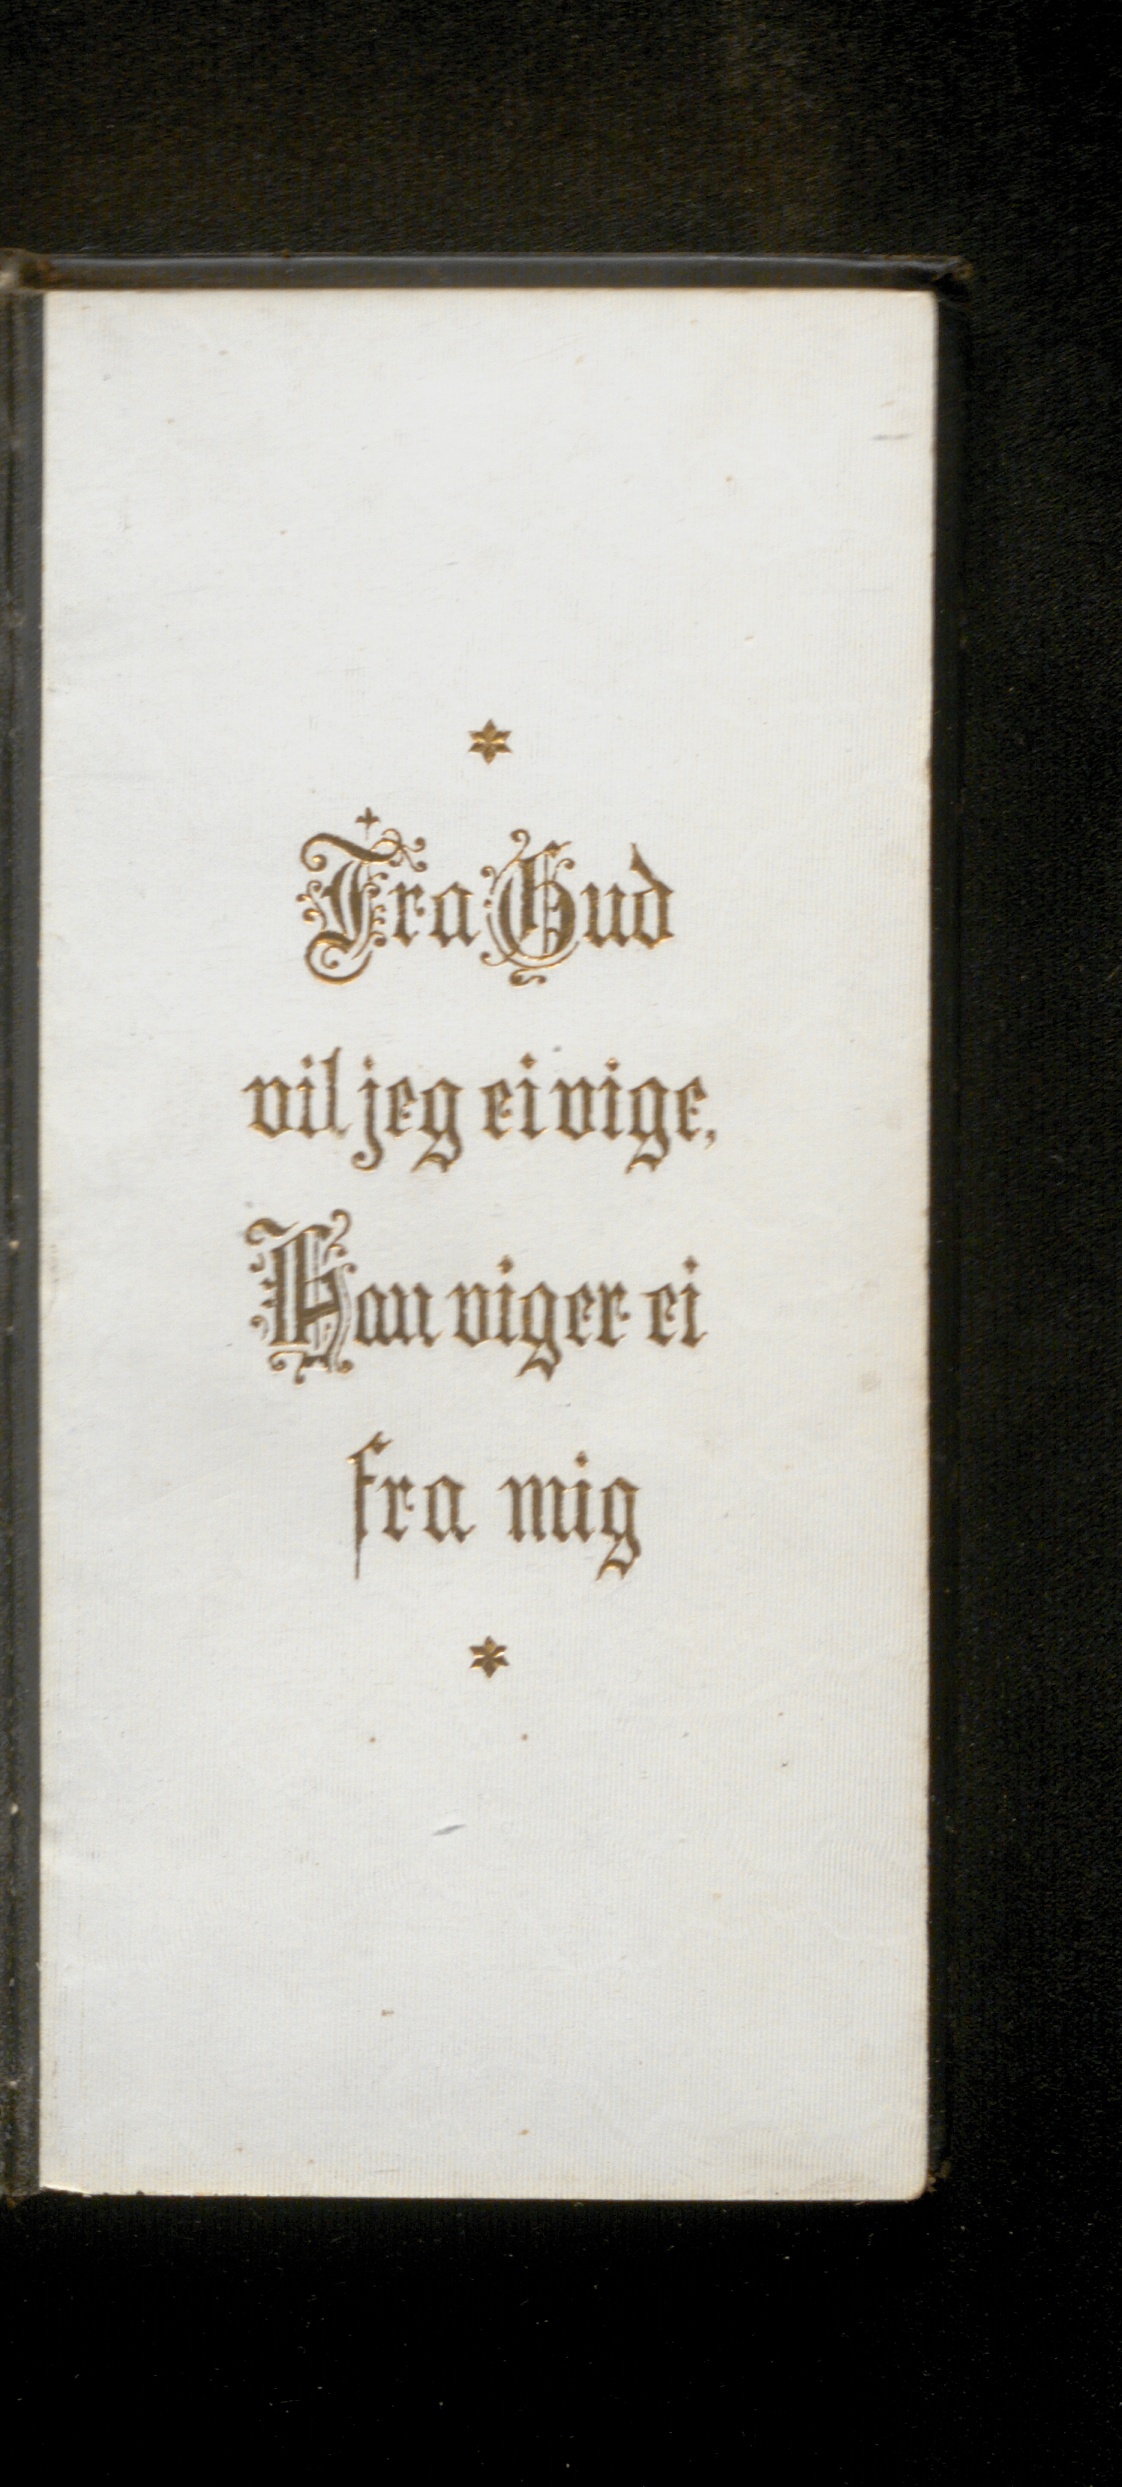 Fra Gud
vil jeg ei vige,
Han viger ei
fra mig